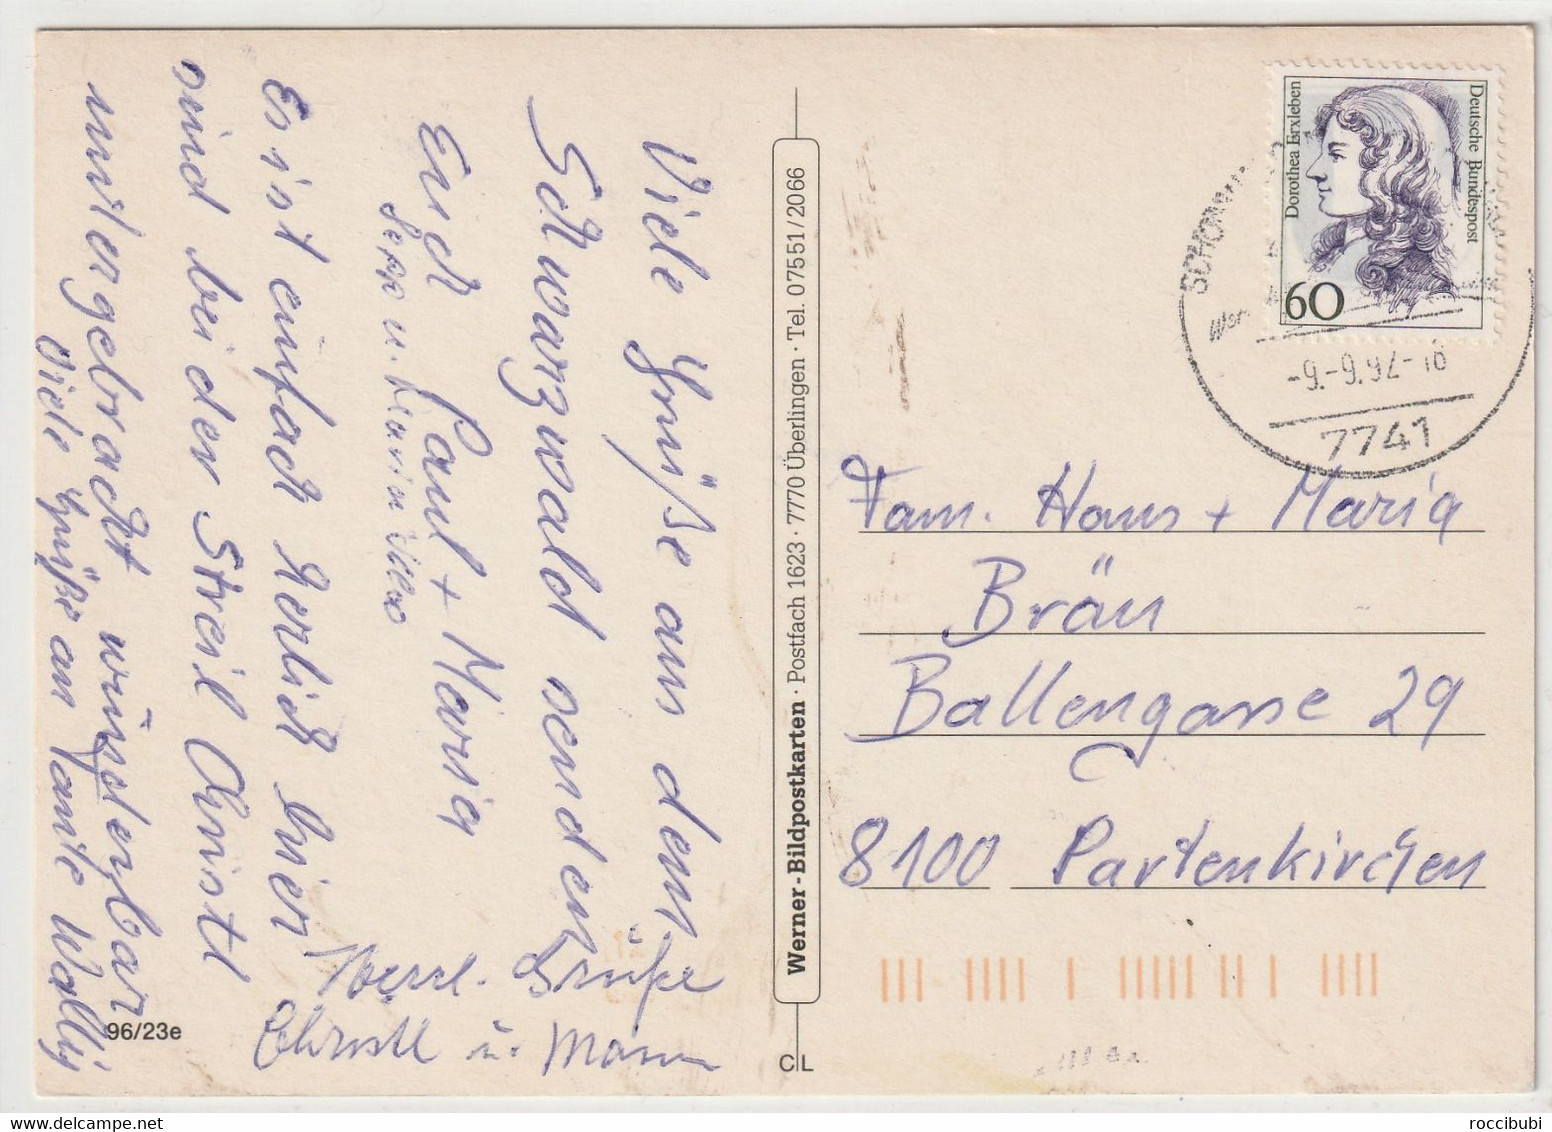 Viele Grüße aus dem
Schwarzwald senden
Euch Paul + Maria
Sepp u. Maria
Es ist einfach herlich hier
sind bei der Streil Christl
untergebracht wunderbar
Viele Grüße an Tante Wally
Herzl. Grüße
Christl u. Mann
96/23e
Werner-Bildpostkarten · Postfach 1623 · 7770 Überlingen · Tel. 07551/2066
C L
Dorothea Erxleben
Deutsche Bundespost
60
-9.-9.92-18
7741
Fam. Hans + Maria
Bräu
Ballengasse 29
8100 Partenkirchen
roccibubi